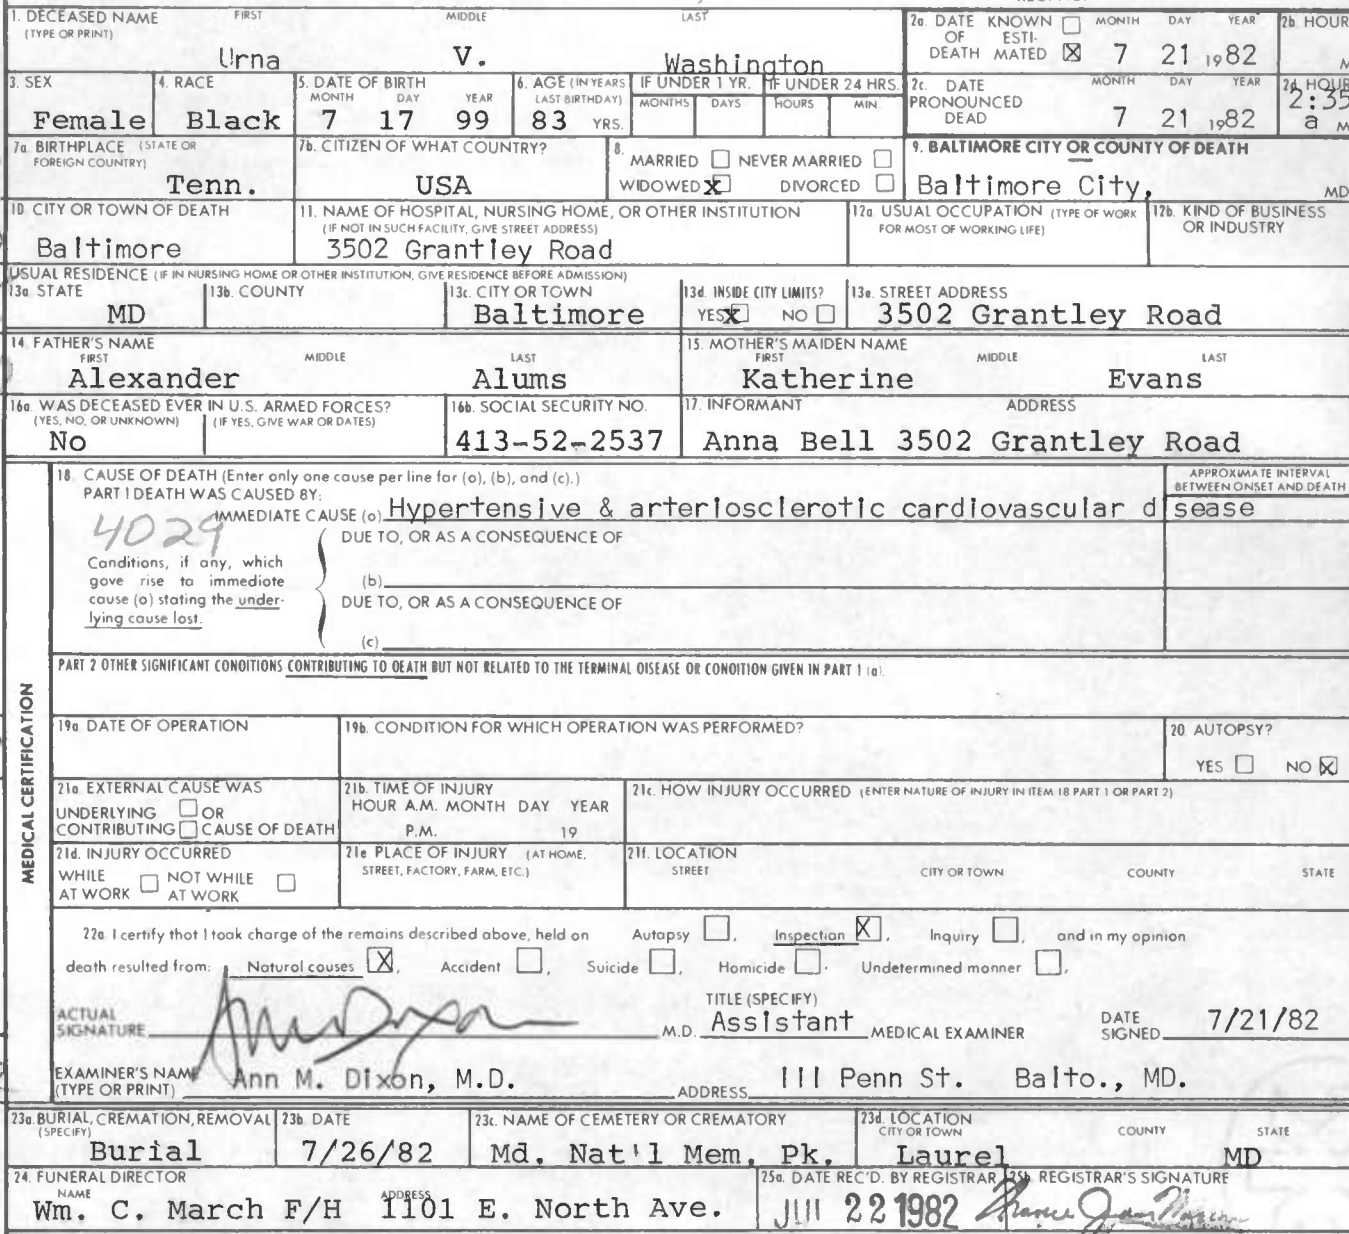 1. DECEASED NAME FIRST MIDDLE LAST
(TYPE OR PRINT)
Urna V. Washington
2a. DATE KNOWN ☐ MONTH DAY YEAR
OF ESTI-
DEATH MATED ☒ 7 21 1982
2b. HOUR
M
3. SEX
Female
4. RACE
Black
5. DATE OF BIRTH
MONTH DAY YEAR
7 17 99
6. AGE (IN YEARS
LAST BIRTHDAY)
83 YRS.
IF UNDER 1 YR.
MONTHS DAYS
IF UNDER 24 HRS.
HOURS MIN
2c. DATE MONTH DAY YEAR
PRONOUNCED
DEAD 7 21 1982
2d. HOUR
2:35
a M
7a. BIRTHPLACE (STATE OR
FOREIGN COUNTRY)
Tenn.
7b. CITIZEN OF WHAT COUNTRY?
USA
8.
MARRIED ☐ NEVER MARRIED ☐
WIDOWED ☒ DIVORCED ☐
9. BALTIMORE CITY OR COUNTY OF DEATH
Baltimore City, MD
10. CITY OR TOWN OF DEATH
Baltimore
11. NAME OF HOSPITAL, NURSING HOME, OR OTHER INSTITUTION
(IF NOT IN SUCH FACILITY, GIVE STREET ADDRESS)
3502 Grantley Road
12a. USUAL OCCUPATION (TYPE OF WORK
FOR MOST OF WORKING LIFE)
12b. KIND OF BUSINESS
OR INDUSTRY
USUAL RESIDENCE (IF IN NURSING HOME OR OTHER INSTITUTION, GIVE RESIDENCE BEFORE ADMISSION)
13a. STATE
MD
13b. COUNTY
13c. CITY OR TOWN
Baltimore
13d. INSIDE CITY LIMITS?
YES ☒ NO ☐
13e. STREET ADDRESS
3502 Grantley Road
14. FATHER'S NAME
FIRST MIDDLE LAST
Alexander Alums
15. MOTHER'S MAIDEN NAME
FIRST MIDDLE LAST
Katherine Evans
16a. WAS DECEASED EVER IN U.S. ARMED FORCES?
(YES, NO, OR UNKNOWN) (IF YES, GIVE WAR OR DATES)
No
16b. SOCIAL SECURITY NO.
413-52-2537
17. INFORMANT ADDRESS
Anna Bell 3502 Grantley Road
MEDICAL CERTIFICATION
18. CAUSE OF DEATH (Enter only one cause per line for (a), (b), and (c).)
PART I DEATH WAS CAUSED BY:
APPROXIMATE INTERVAL
BETWEEN ONSET AND DEATH
IMMEDIATE CAUSE (a) Hypertensive & arteriosclerotic cardiovascular disease
4029
DUE TO, OR AS A CONSEQUENCE OF
Conditions, if any, which
gave rise to immediate
cause (a) stating the under-
lying cause last.
(b)
DUE TO, OR AS A CONSEQUENCE OF
(c)
PART 2 OTHER SIGNIFICANT CONDITIONS CONTRIBUTING TO DEATH BUT NOT RELATED TO THE TERMINAL DISEASE OR CONDITION GIVEN IN PART 1 (a).
19a. DATE OF OPERATION
19b. CONDITION FOR WHICH OPERATION WAS PERFORMED?
20. AUTOPSY?
YES ☐ NO ☒
21a. EXTERNAL CAUSE WAS
UNDERLYING ☐ OR
CONTRIBUTING ☐ CAUSE OF DEATH
21b. TIME OF INJURY
HOUR A.M. MONTH DAY YEAR
P.M. 19
21c. HOW INJURY OCCURRED (ENTER NATURE OF INJURY IN ITEM 18 PART 1 OR PART 2)
21d. INJURY OCCURRED
WHILE ☐ NOT WHILE ☐
AT WORK AT WORK
21e. PLACE OF INJURY (AT HOME,
STREET, FACTORY, FARM, ETC.)
21f. LOCATION
STREET CITY OR TOWN COUNTY STATE
22a. I certify that I took charge of the remains described above, held on Autopsy ☐, Inspection ☒, Inquiry ☐, and in my opinion
death resulted from: Natural causes ☒, Accident ☐, Suicide ☐, Homicide ☐. Undetermined manner ☐,
ACTUAL
SIGNATURE Ann M Dixon M.D.
TITLE (SPECIFY)
Assistant MEDICAL EXAMINER
DATE
SIGNED 7/21/82
EXAMINER'S NAME
(TYPE OR PRINT) Ann M. Dixon, M.D. ADDRESS 111 Penn St. Balto., MD.
23a. BURIAL, CREMATION, REMOVAL
(SPECIFY)
Burial
23b. DATE
7/26/82
23c. NAME OF CEMETERY OR CREMATORY
Md. Nat'l Mem. Pk.
23d. LOCATION
CITY OR TOWN COUNTY STATE
Laurel MD
24. FUNERAL DIRECTOR
NAME ADDRESS
Wm. C. March F/H 1101 E. North Ave.
25a. DATE REC'D. BY REGISTRAR
JUL 22 1982
25b. REGISTRAR'S SIGNATURE